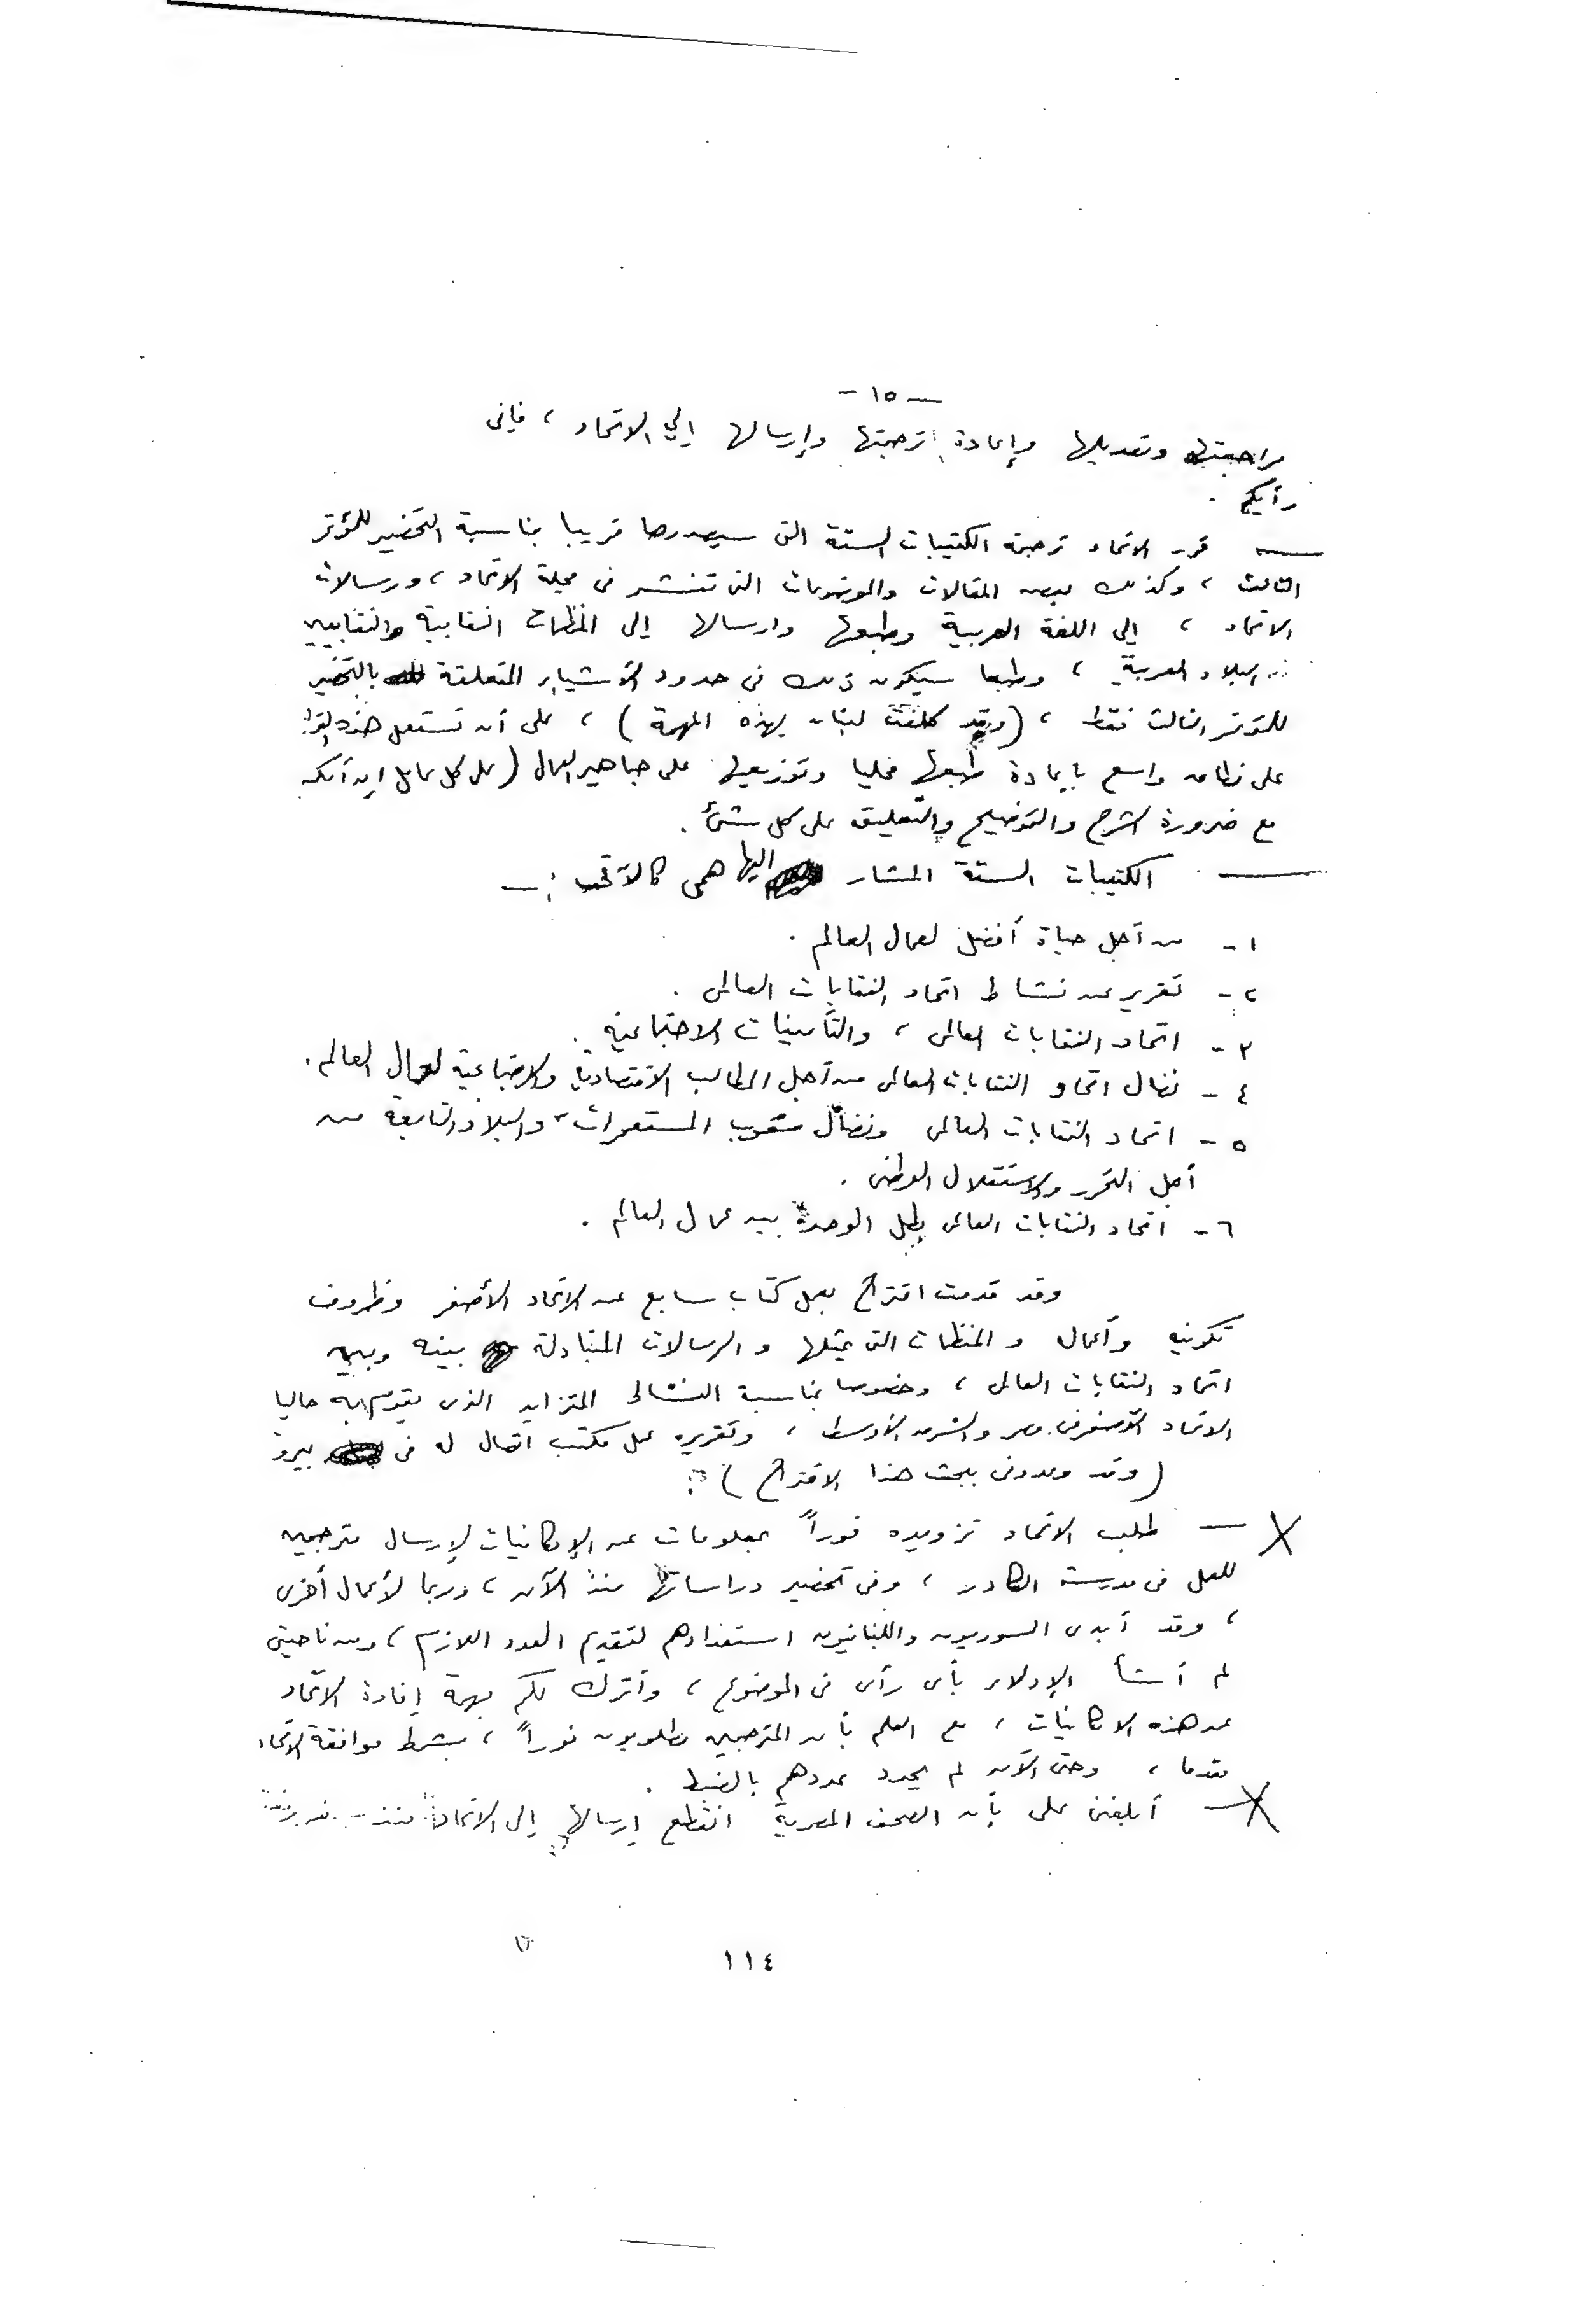 — ١٥ —
مراجعتها وتعديلها وإعادة ترجمتها وإرسالها إلى الاتحاد ، فإنى
رأيكم .
— قرر الاتحاد ترجمة الكتيبات الستة التى سيصدرها قريبا بمناسبة التحضير للمؤتمر
الثالث ، وكذلك بعض المقالات والموضوعات التى تنشر فى مجلة الاتحاد ، ورسالات
الاتحاد ، إلى اللغة العربية وطبعها وارسالها إلى المنظمات النقابية والنقابيين
البلاد العربية ، وطبعا سيكون ذلك فى حدود الأشياء المتعلقة بالتحضير
للمؤتمر الثالث فقط ، ( وقد كلفت لبنان بهذه المهمة ) ، على أن تستعمل هذه
على نطاق واسع بإعادة طبعها محليا وتوزيعها على جماهير العمال ( على كل عامل إن أمكن
مع ضرورة الشرح والتوضيح والتعليق على كل شئ .
— الكتيبات الستة المشار اليها هى كالآتى : —
١ - من أجل حياة أفضل لعمال العالم .
٢ - تقرير عن نشاط اتحاد النقابات العالمى .
٣ - اتحاد النقابات العالمى ، والتأمينات الاجتماعية .
٤ - نضال اتحاد النقابات العالمى من أجل المطالب الاقتصادية والاجتماعية لعمال العالم .
٥ - اتحاد النقابات العالمى ونضال شعوب المستعمرات ، والبلاد التابعة من
أجل التحرر والاستقلال الوطنى .
٦ - اتحاد النقابات العالمى بطل الوحدة بين عمال العالم .
وقد قدمت اقتراح بعمل كتاب سابع عن الاتحاد الأصفر وظروف
تكوينه وأعمال و المنظمات التى يمثلها و الرسالات المتبادلة بينه وبين
اتحاد النقابات العالمى ، وخصوصا بمناسبة النشاط المتزايد الذى يقوم به حاليا
الاتحاد الأصفر فى مصر والشرق الأوسط ، وتقريره عمل مكتب اتصال له فى بيروت
( وقد وعدونى ببحث هذا الاقتراح ) .
— طلب الاتحاد تزويده فوراً بمعلومات عن الإمكانيات لإرسال مترجمين
للعمل فى مدرسة الكادر ، وفى تحضير دراساتها منذ الآن ، وربما لأعمال أخرى
، وقد أبدى السوريون واللبنانيون استعدادهم لتقديم العدد اللازم ، ومن ناحيتى
لم أشأ الإدلاء بأى رأى فى الموضوع ، وأترك لكم مهمة إفادة الاتحاد
عن هذه الامكانيات ، مع العلم بأن المترجمين مطلوبون فوراً ، بشرط موافقة الاتحاد
مقدما ، وحتى الآن لم يحدد عددهم بالضبط .
— أبلغنى على بأن الصحف المصرية انقطع إرسالها إلى الاتحاد منذ
١١٤